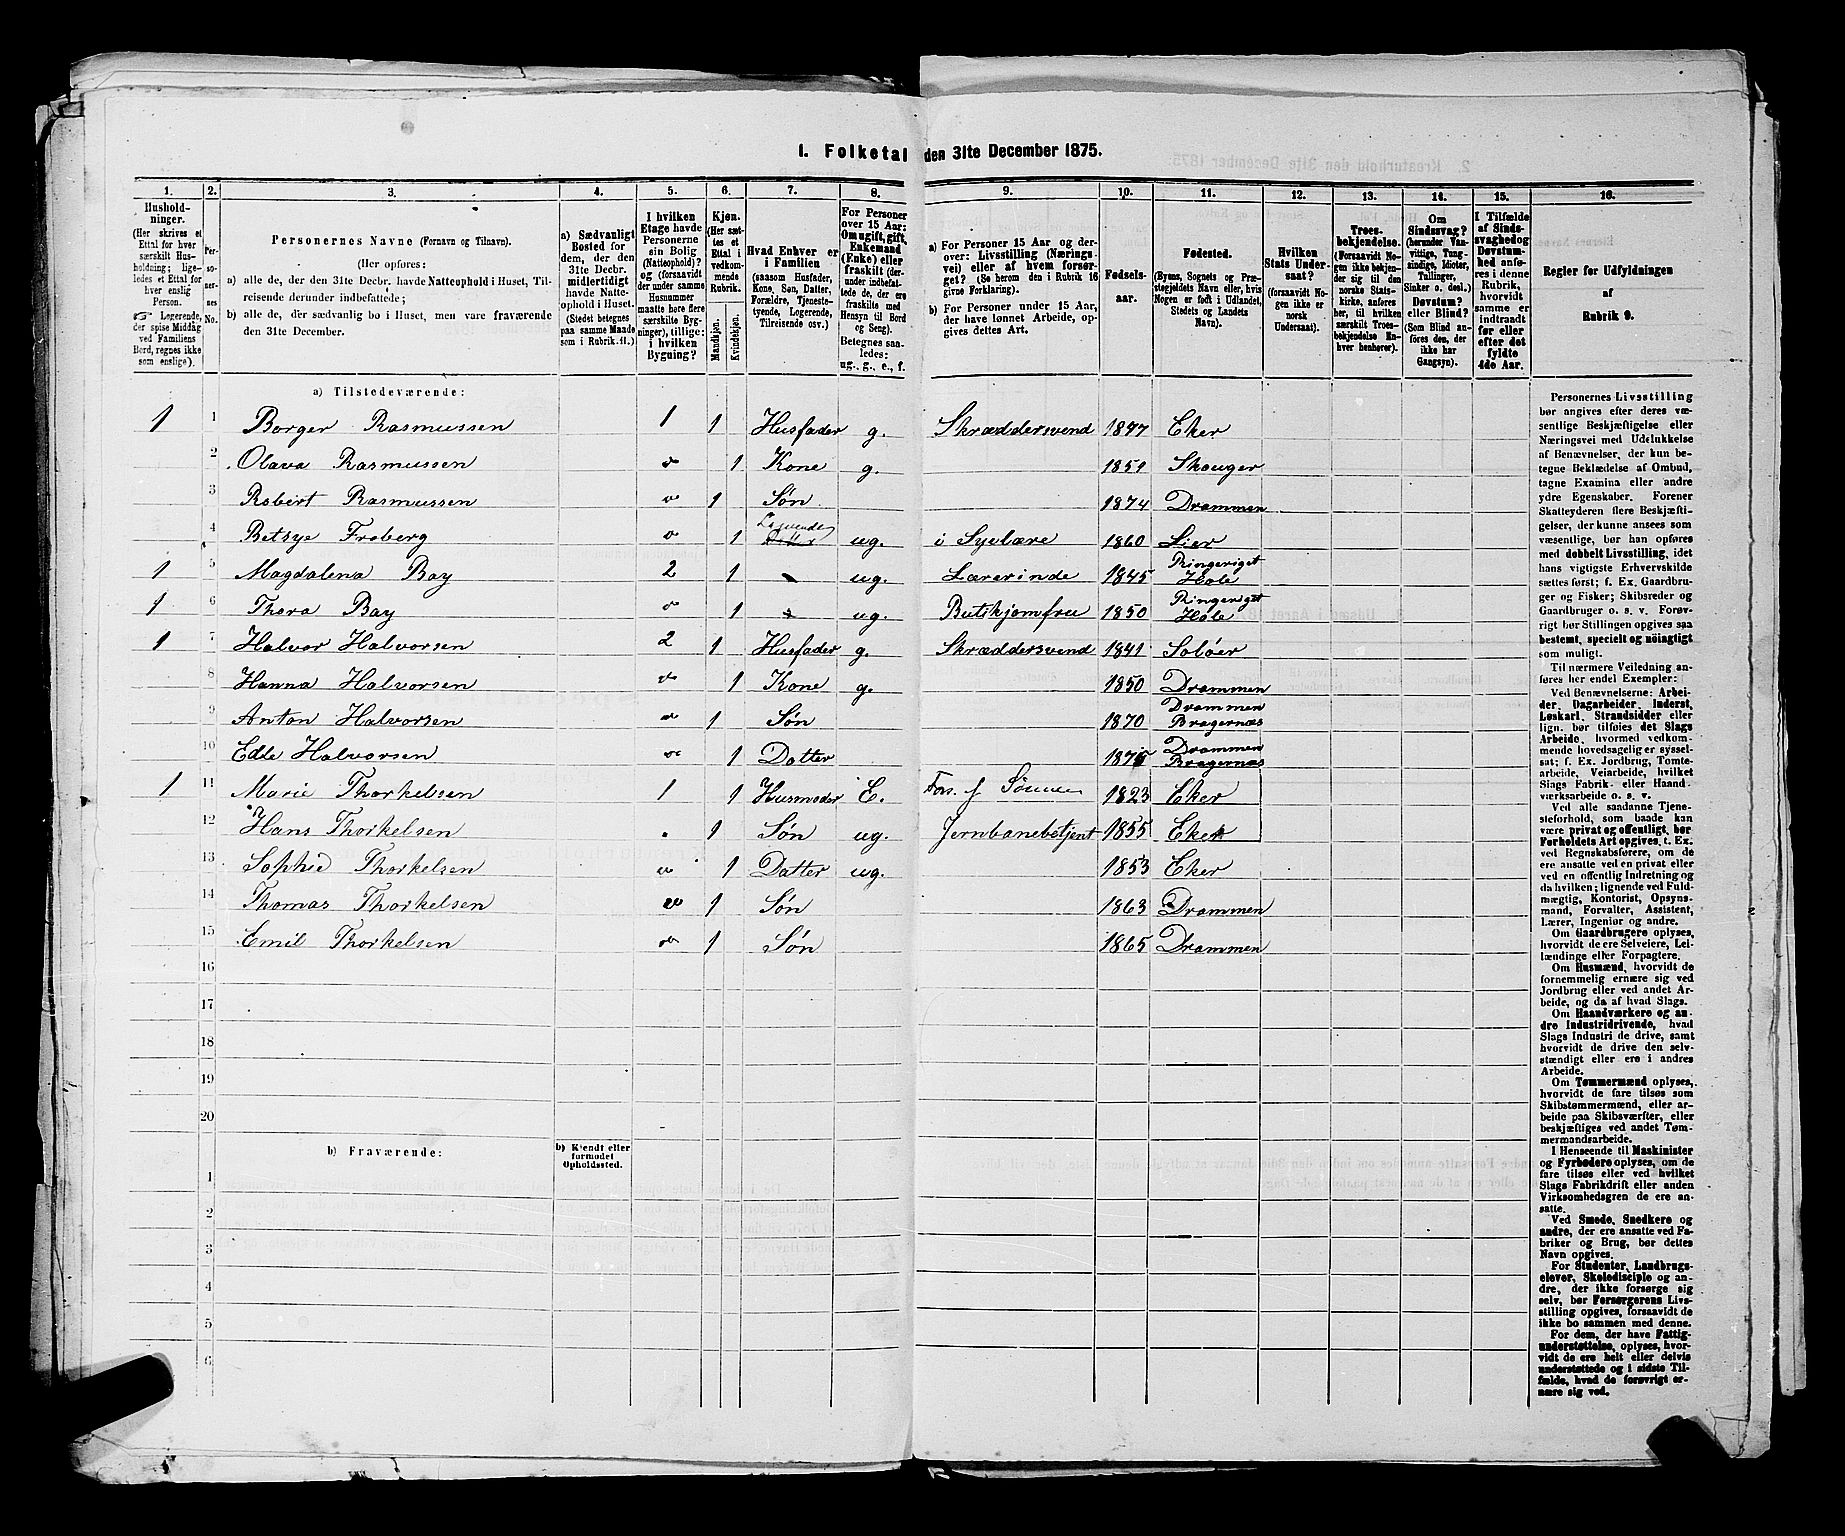 1. Folketal den 31te December 1875.
1. 2. 3. 4. 5. 6. 7. 8. 9. 10. 11. 12. 13. 14. 15. 16.
Hushold-
ninger.
(Her skrives et
Ettal for hver
særskilt Hus-
holdning; lige-
ledes et Ettal
for hver
enslig
Person.
Logerende,
der spise Middag
ved Familiens
Bord, regnes ikke
som enslige).
Per-
so-
ner-
nes
No.
Personernes Navne (Fornavn og Tilnavn).
(Her opføres:
a) alle de, der den 31te Decbr. havde Natteophold i Huset, Til-
reisende derunder indbefattede;
b) alle de, der sædvanlig bo i Huset, men vare fraværende
den 31te December.
a) Sædvanligt
Bosted for
dem, der den
31te Decbr.
midlertidigt
havde Natte-
ophold i Huset.
(Stedet betegnes
paa samme Maade
som i Rubrik 11.)
I hvilken
Etage havde
Personerne
sin Bolig
(Natteophold)?
og (forsaavidt
der under samme
Husnummer
maatte høre flere
særskilte Byg-
ninger), tillige:
i hvilken
Bygning?
Kjøn.
(Her sæt-
tes et
Ettal i
vedkom-
mende
Rubrik.
Mandkjøn.
Kvindekjøn.
Hvad Enhver er
i Familien
(saasom Husfader,
Kone, Søn, Datter,
Forældre, Tjeneste-
tyende, Logerende,
Tilreisende osv.)
For Personer
over 15 Aar:
Om ugift, gift,
Enkemand
(Enke) eller
fraskilt (der-
under indbefat-
tede de, der ere
fraskilte med
Hensyn til Bord
og Seng).
Betegnes saa-
ledes:
ug., g., e., f.
a) For Personer 15 Aar og der-
over: Livsstilling (Nærings-
vei) eller af hvem forsør-
get? (Se herom den i Rubrik 16
givne Forklaring).
b) For Personer under 15 Aar,
der have lønnet Arbeide, op-
gives dettes Art.
Fødsels-
aar.
Fødested.
(Byens, Sognets og Præ-
stegjeldets Navn eller, hvis
Nogen er født i Udlandet,
Stedets og Landets
Navn).
Hvilken
Stats Under-
saat?
(forsaavidt No-
gen ikke er
norsk
Undersaat).
Troes-
bekjendelse.
(Forsaavidt No-
gen ikke bekjen-
der sig til den
norske Stats-
kirke, anføres
her, til hvilken
særskilt Troes-
bekjendelse En-
hver henhører).
Om
Sindssvag?
(herunder Van-
vittige, Tung-
sindige, Idioter,
Tullinger,
Sinker o. desl.)
Døvstum?
eller Blind?
(Som Blind an-
føres den, der
ikke har
Gangsyn).
I Tilfælde
af Sinds-
svaghed og
Døvstum-
hed anfø-
res i denne
Rubrik,
hvorvidt
samme er
indtraadt
før eller
efter det
fyldte
4de Aar.
Regler for Udfyldningen
af
Rubrik 9.
a) Tilstedeværende:
1 1 Borger Rasmussen 1 1 Husfader g. Skræddersvend 1847 Eker
2 Olava Rasmussen 1 Kone g. 1851 Skouger
3 Robert Rasmussen 1 Søn 1874 Drammen
4 Betsye Froberg 1 Logerende ug. i Sylære 1860 Lier
1 5 Magdalena Bay 2 1 ug. Lærerinde 1845 Ringeriget Hole
1 6 Thora Bay 1 ug. Butikjomfru 1850 Ringeriget Hole
1 7 Halvor Halvorsen 2 1 Husfader g. Skræddersvend 1841 Soløer
8 Hanna Halvorsen 1 Kone g. 1850 Drammen
9 Anton Halvorsen 1 Søn 1870 Drammen Bragernæs
10 Edle Halvorsen 1 Datter 1875 Drammen Bragernæs
1 11 Marie Thorkelsen 1 1 Husmoder E. Fors. af Sønnen 1823 Eker
12 Hans Thorkelsen 1 Søn ug. Jernbanebetjent 1855 Eker
13 Sophie Thorkelsen 1 Datter ug. 1853 Eker
14 Thomas Thorkelsen 1 Søn 1863 Drammen
15 Emil Thorkelsen 1 Søn 1865 Drammen
16
17
18
19
20
b) Fraværende:
b) Kjendt eller
formodet
Opholdssted.
1
2
3
4
5
6
Personernes Livsstilling
bør angives efter deres væ-
sentlige Beskjæftigelse eller
Næringsvei med Udelukkelse
af Benævnelser, der kun be-
tegne Beklædelse af Ombud,
tagne Examina eller andre
ydre Egenskaber. Forener
Skatteyderen flere Beskjæfti-
gelser, der kunne ansees som
væsentlige, bør han opføres
med dobbelt Livsstilling, idet
hans vigtigste Erhvervskilde
sættes først; f. Ex. Gaardbru-
ger og Fisker; Skibsreder og
Gaardbruger o. s. v. Forøv-
rigt bør Stillingen opgives saa
bestemt, specielt og nøiagtigt
som muligt.
Til nærmere Veiledning an-
føres her endel Exempler:
Ved Benævnelserne: Arbei-
der, Dagarbeider, Inderst,
Løskarl, Strandsidder eller
lign. bør tilføies det Slags
Arbeide, hvormed vedkom-
mende hovedsagelig er syssel-
sat; f. Ex. Jordbrug, Tomte-
arbeide, Veiarbeide, hvilket
Slags Fabrik- eller Haand-
værksarbeide o. s. v.
Ved alle saadanne Tjene-
steforhold, som baade kan
være privat og offentligt, bør
Forholdets Art opgives, t. Ex.
ved Regnskabsførere, om de
ere ansatte ved en privat eller
ved en offentlig Indretning og
da hvilken; lignende ved Fuld-
mægtig, Kontorist, Opsyns-
mand, Forvalter, Assistent,
Lærer, Ingeniør og andre.
Om Gaardbrugere oplyses,
hvorvidt de ere Selveiere, Lei-
lændinge eller Forpagtere.
Om Husmænd, hvorvidt de
fornemmelig ernære sig ved
Jordbrug eller ved andet Ar-
beide, og da af hvad Slags.
Om Haandværkere og an-
dre Industridrivende, hvad
Slags Industri de drive, samt
hvorvidt de drive den selv-
stændigt eller ere i andres
Arbeide.
Om Tømmermænd oplyses,
hvorvidt de fare tilsøs som
Skibstømmermænd, eller ar-
beide paa Skibsværfter, eller
beskjæftiges ved andet Tøm-
mermandsarbeide.
I Henseende til Maskinister
og Fyrbødere oplyses, om de
fare tilsøs eller ved hvilket
Slags Fabrikdrift eller anden
Virksomhedsgren de ere an-
satte.
Ved Smede, Snedkere og
andre, der ere ansatte ved Fa-
briker og Brug, bør dettes
Navn opgives.
For Studenter, Landbrugs-
elever, Skoledisciple og an-
dre, der ikke forsørge sig
selv, bør Forsørgerens Livs-
stilling opgives, forsaavidt de
ikke bo sammen med denne.
For dem, der have Fattig-
understøttelse, oplyses, hvor-
vidt de ere helt eller delvis
understøttede og i sidste Til-
fælde, hvad de forøvrigt er-
nære sig ved.